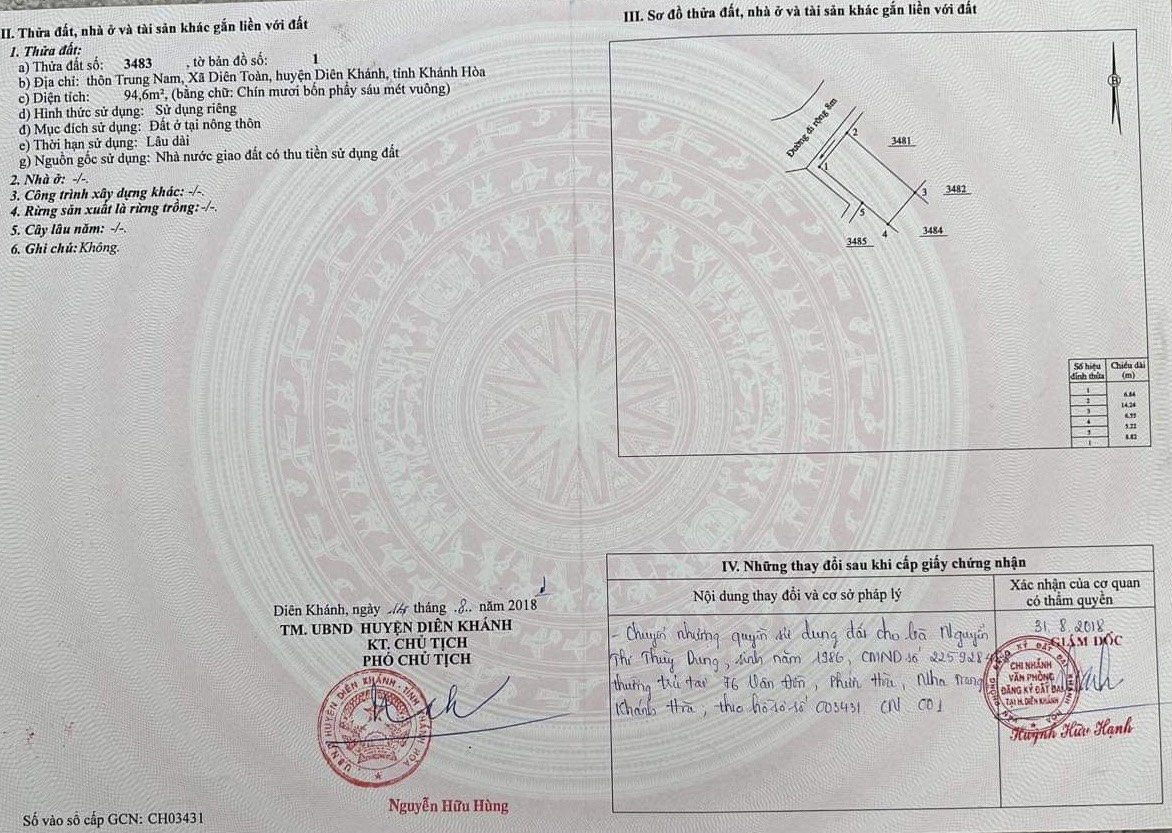 II. Thửa đất, nhà ở và tài sản khác gắn liền với đất
1. Thửa đất:
a) Thửa đất số: 3483 , tờ bản đồ số: 1
b) Địa chỉ: thôn Trung Nam, Xã Diên Toàn, huyện Diên Khánh, tỉnh Khánh Hòa
c) Diện tích: 94,6m², (bằng chữ: Chín mươi bốn phẩy sáu mét vuông)
d) Hình thức sử dụng: Sử dụng riêng
đ) Mục đích sử dụng: Đất ở tại nông thôn
e) Thời hạn sử dụng: Lâu dài
g) Nguồn gốc sử dụng: Nhà nước giao đất có thu tiền sử dụng đất
2. Nhà ở: -/-.
3. Công trình xây dựng khác: -/-.
4. Rừng sản xuất là rừng trồng: -/-.
5. Cây lâu năm: -/-.
6. Ghi chú: Không.
Diên Khánh, ngày 14 tháng .8.. năm 2018
TM. UBND HUYỆN DIÊN KHÁNH
KT. CHỦ TỊCH
PHÓ CHỦ TỊCH
UBND HUYỆN DIÊN KHÁNH - TỈNH KHÁNH HÒA
Nguyễn Hữu Hùng
Số vào sổ cấp GCN: CH03431
III. Sơ đồ thửa đất, nhà ở và tài sản khác gắn liền với đất
B
Đường đi rộng 8m
1
2
3481
3
3482
3484
4
5
3485
Số hiệu đỉnh thửa Chiều dài (m)
1
6.84
2
14.24
3
6.55
4
5.22
5
8.82
1
IV. Những thay đổi sau khi cấp giấy chứng nhận
Nội dung thay đổi và cơ sở pháp lý
Xác nhận của cơ quan
có thẩm quyền
- Chuyển nhượng quyền sử dụng đất cho bà Nguyễn
Thị Thùy Dung, sinh năm 1986, CMND số 225928
thường trú tại 76 Vân Đồn, Phước Hòa, Nha Trang
Khánh Hòa, theo hồ sơ số 003431. CN 001
31.8.2018
GIÁM ĐỐC
CHI NHÁNH
VĂN PHÒNG
ĐĂNG KÝ ĐẤT ĐAI
TẠI H. DIÊN KHÁNH
Huỳnh Hữu Hạnh